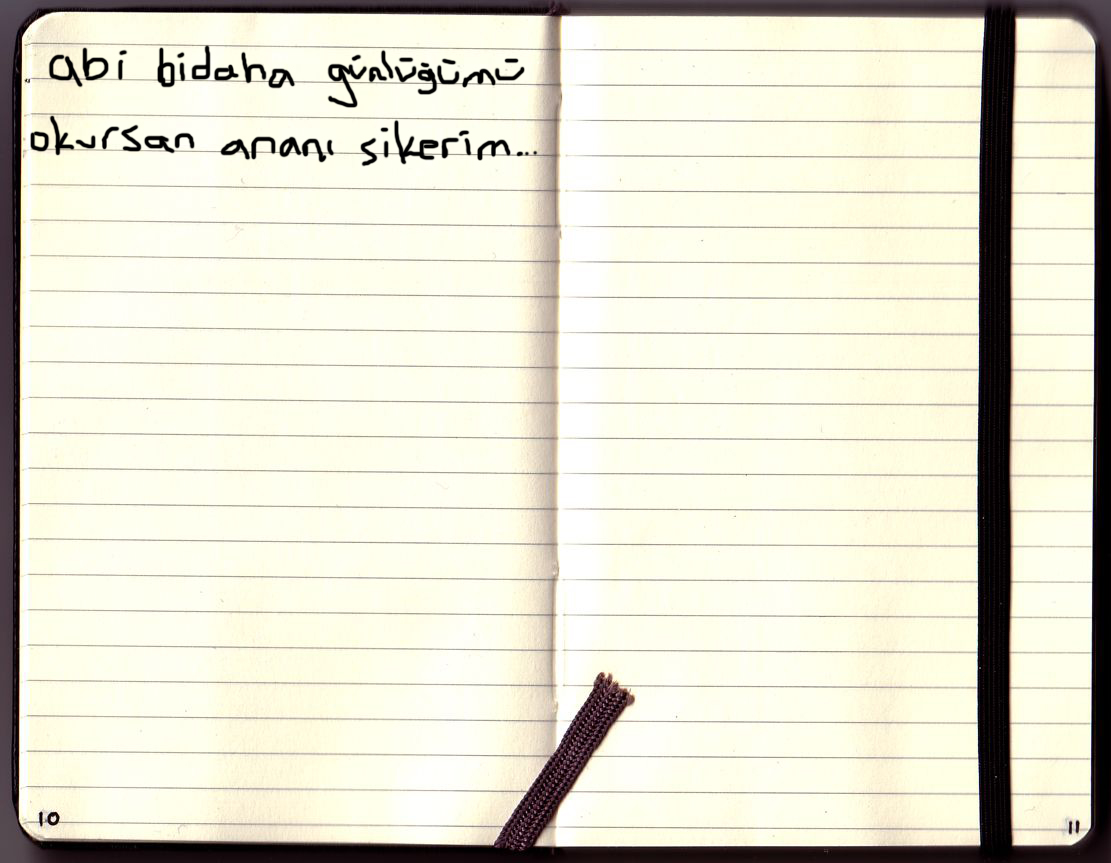 abi bidaha günlüğümü
okursan ananı sikerim...
10
11